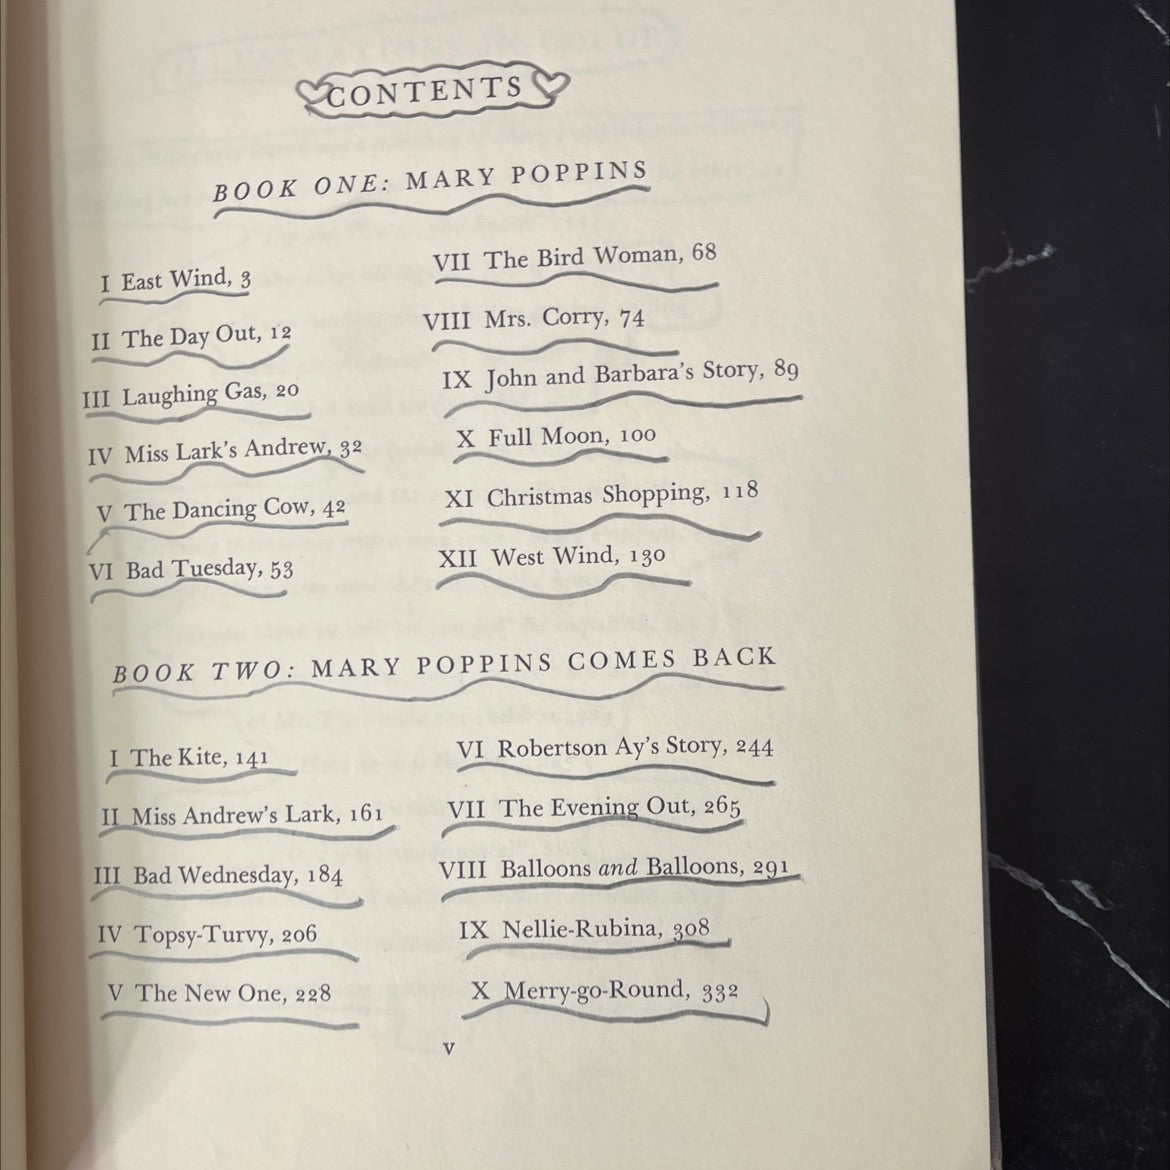 CONTENTS
BOOK ONE: MARY POPPINS
I East Wind, 3
II The Day Out, 12
III Laughing Gas, 20
IV Miss Lark's Andrew, 32
V The Dancing Cow, 42
VI Bad Tuesday, 53
VII The Bird Woman, 68
VIII Mrs. Corry, 74
IX John and Barbara's Story, 89
X Full Moon, 100
XI Christmas Shopping, 118
XII West Wind, 130
BOOK TWO: MARY POPPINS COMES BACK
I The Kite, 141
II Miss Andrew's Lark, 161
III Bad Wednesday, 184
IV Topsy-Turvy, 206
V The New One, 228
VI Robertson Ay's Story, 244
VII The Evening Out, 265
VIII Balloons and Balloons, 291
IX Nellie-Rubina, 308
X Merry-go-Round, 332
v